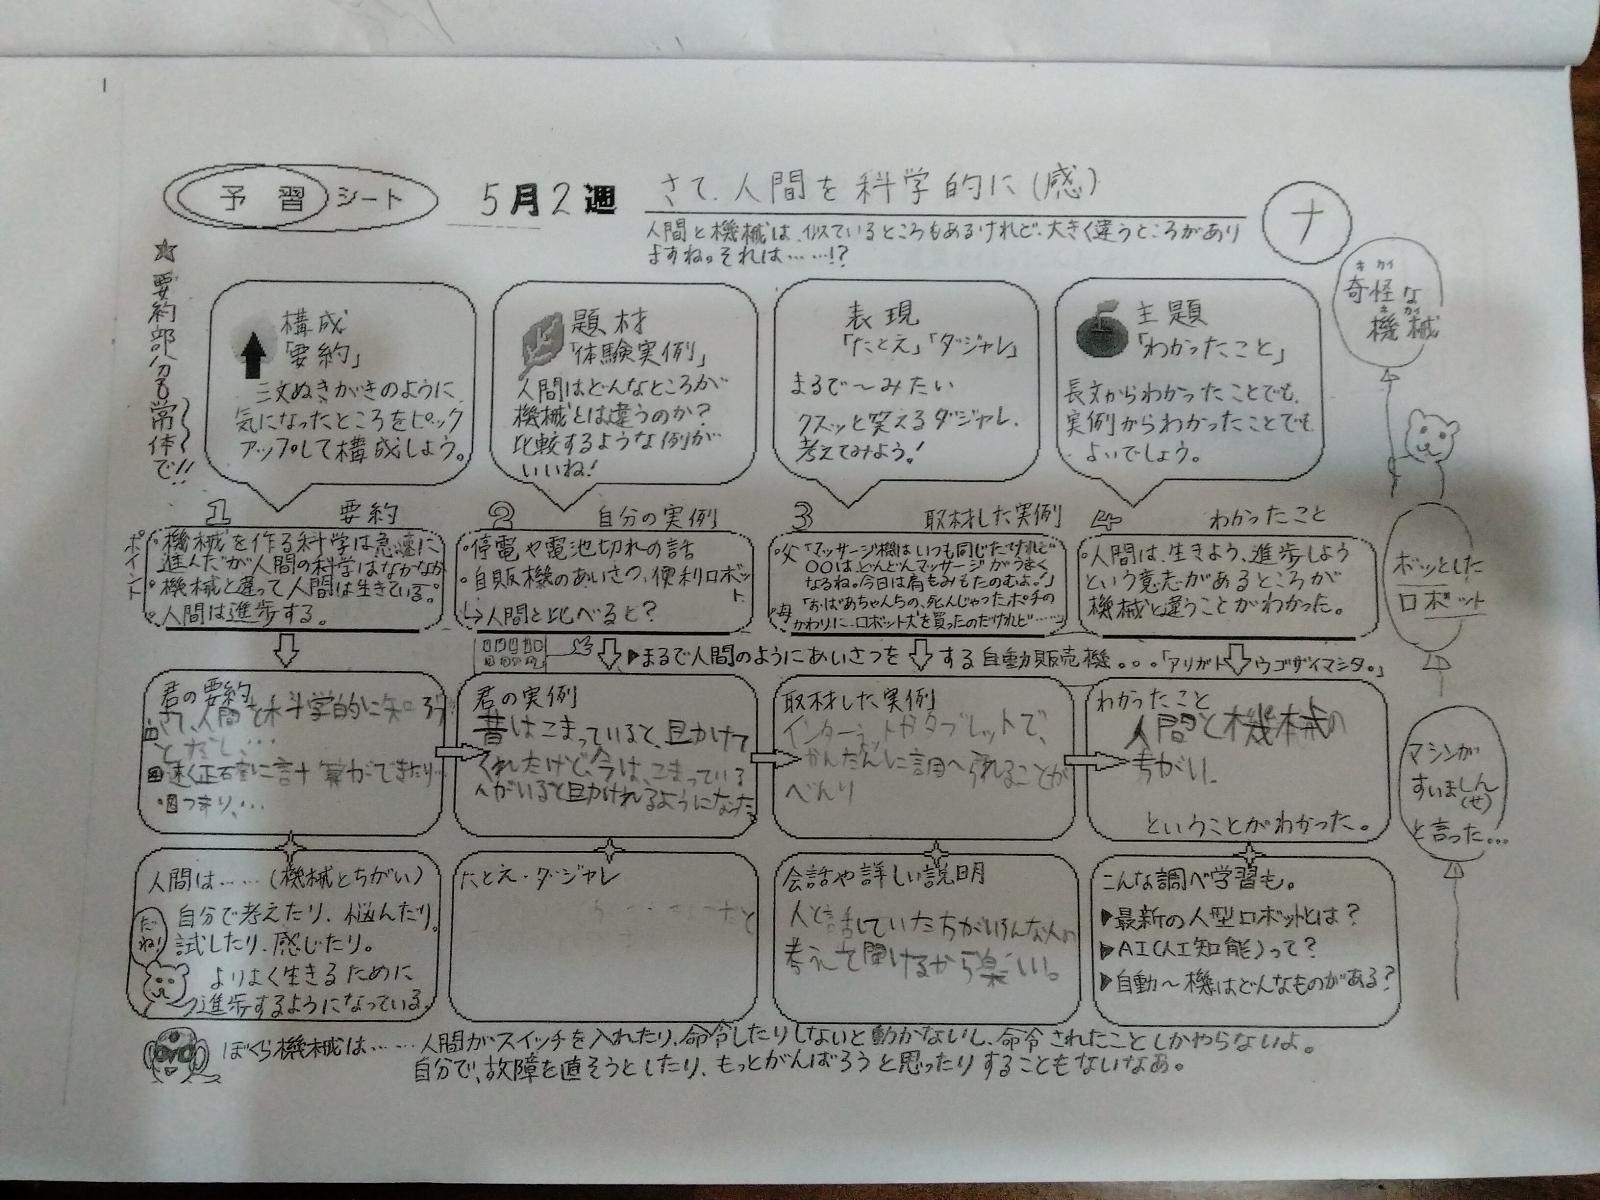 予習シート
5月2週
さて、人間を科学的に(感)
ナ
人間と機械は、似ているところもあるけれど、大きく違うところがあり
ますね。それは……!?
☆要約部分も常体で!!
構成
「要約」
三文ぬきがきのように
気になったところをピック
アップして構成しよう。
題材
「体験実例」
人間はどんなところが
機械とは違うのか?
比較するような例が
いいね!
表現
「たとえ」「ダジャレ」
まるで〜みたい
クスッと笑えるダジャレ、
考えてみよう!
主題
「わかったこと」
長文からわかったことでも、
実例からわかったことでも
よいでしょう。
キカイ
奇怪な
キカイ
機械
1 要約
ポイント
・機械を作る科学は急速に
進んだが人間の科学はなかなか
・機械と違って人間は生きている。
・人間は進歩する。
2 自分の実例
・停電や電池切れの話
・自販機のあいさつ、便利ロボット
↳人間と比べると?
3 取材した実例
・父「マッサージ機はいつも同じだけれど
〇〇はどんどんマッサージがうまく
なるね。今日は肩もみもたのむよ!」
・母「おばあちゃんちの、死んじゃったポチの
かわりに、ロボット犬を買ったのだけれど……
4 わかったこと
・人間は、生きよう、進歩しよう
という意志があるところが
機械と違うことがわかった。
ボッとした
ロボット
▶まるで人間のようにあいさつをする自動販売機。。。「アリガトウゴザイマシタ。」
君の要約
さて、人間を科学的に知ろう
とだし、…
速く正確に計算ができたり…
つまり、…
君の実例
昔はこまっていると、助けて
くれたけど、今は、こまっている
人がいると助けれるようになった。
取材した実例
インターネットやタブレットで、
かんたんに調べられることが
べんり
わかったこと
人間と機械の
ちがい。
ということがわかった。
マシンが
すいましん
(せ)
と言った…
人間は……(機械とちがい)
だね!
自分で考えたり、悩んだり、
試したり、感じたり。
よりよく生きるために
進歩するようになっている
たとえ・ダジャレ
会話や詳しい説明
人と話していた方がいろんな人の
考えを聞けるから楽しい。
こんな調べ学習も。
▶最新の人型ロボットとは?
▶AI(人工知能)って?
▶自動〜機はどんなものがある?
ぼくら機械は……人間がスイッチを入れたり、命令したりしないと動かないし、命令されたことしかやらないよ。
自分で、故障を直そうとしたり、もっとがんばろうと思ったりすることもないなあ。